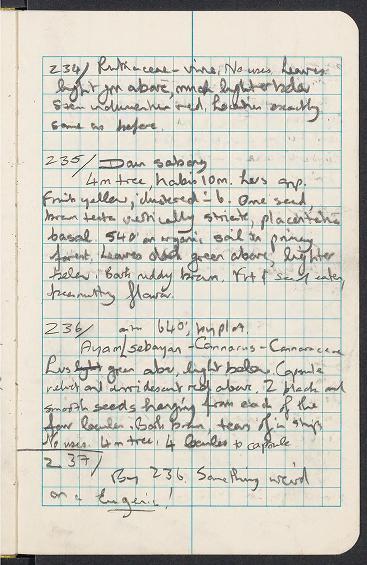 234/ Rutaceae - vine. No uses. Leaves
light grn above, much lighter below
Stem indumentum red. Location exactly
same as before.
235/ Daun sabong
4m tree, habis 10m. Lvs opp.
Fruit yellow, clustered ± 6. One seed,
brown testa vertically striate, placentation
basal. 540' on organic soil in primary
forest. Leaves dark green above, lighter
below. Bark ruddy brown. Frt & seed eaten,
peanutty flavor.
236/ 640', my plot.
Ayam sebayan - Connarus - Connaraceae
Lvs light green abov, light below. Capsule
velvet and irridescent red above. 2 black and
smooth seeds hanging from each of the
four locules. Bark brown, tears off in strips
No uses. 4 m tree. 4 locules to capsule
237/
By 236. Something weird
on a Eugenia!